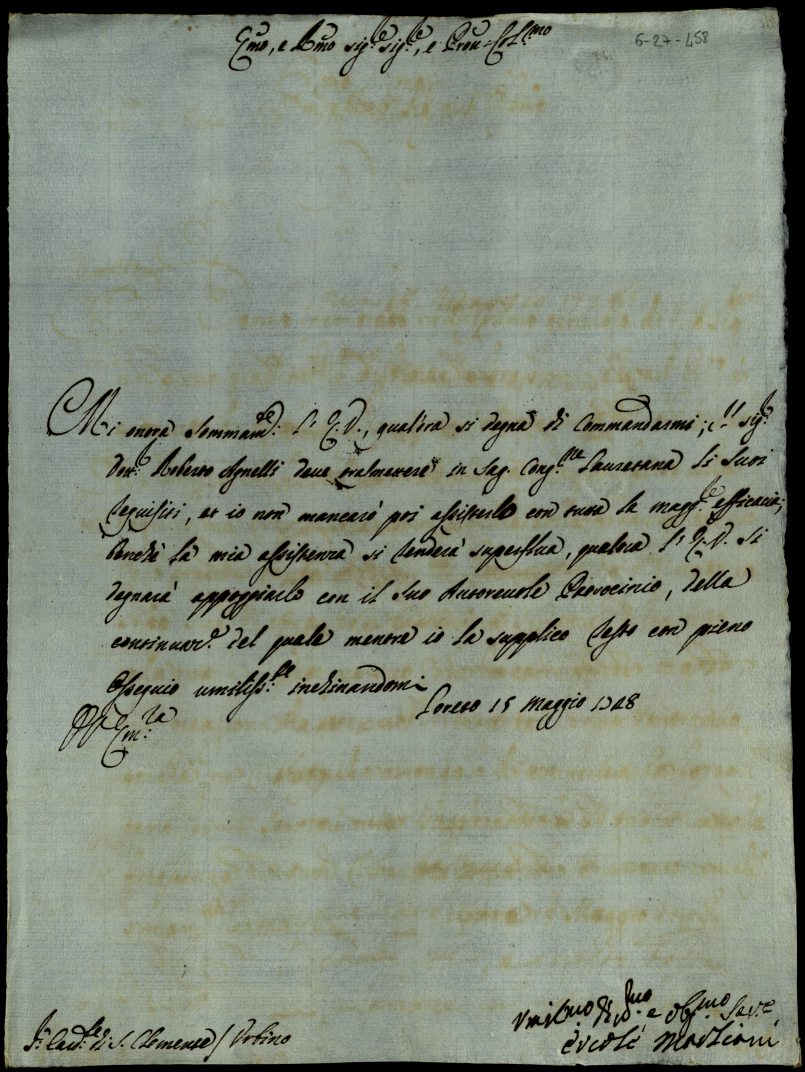 Emo, e Rmo Sig.re Sig.re, e Pron Col.mo
6-27-458
Mi onora sommam.te l'E.V., qualora si degna di commandarmi; Il Sig.r
Dott. Roberto Agnelli deve trasmettere in Sag. Cong.ne Lauretana li suoi
requisiti, et io non mancarò poi assisterlo con tutta la magg.re efficacia;
benchè la mia assistenza si renderà superflua, qualora l'E.V. si
degnarà appoggiarlo con il suo Autorevole Patrocinio, della
continuaz.e del quale mentre io la supplico resto con pieno
Ossequio umiliss.te inchinandomi
Loreto 15 Maggio 1748
Em.za
S. Clemente / Urbino
Umil.mo Di.mo e obl.mo Ser.e
Ercole